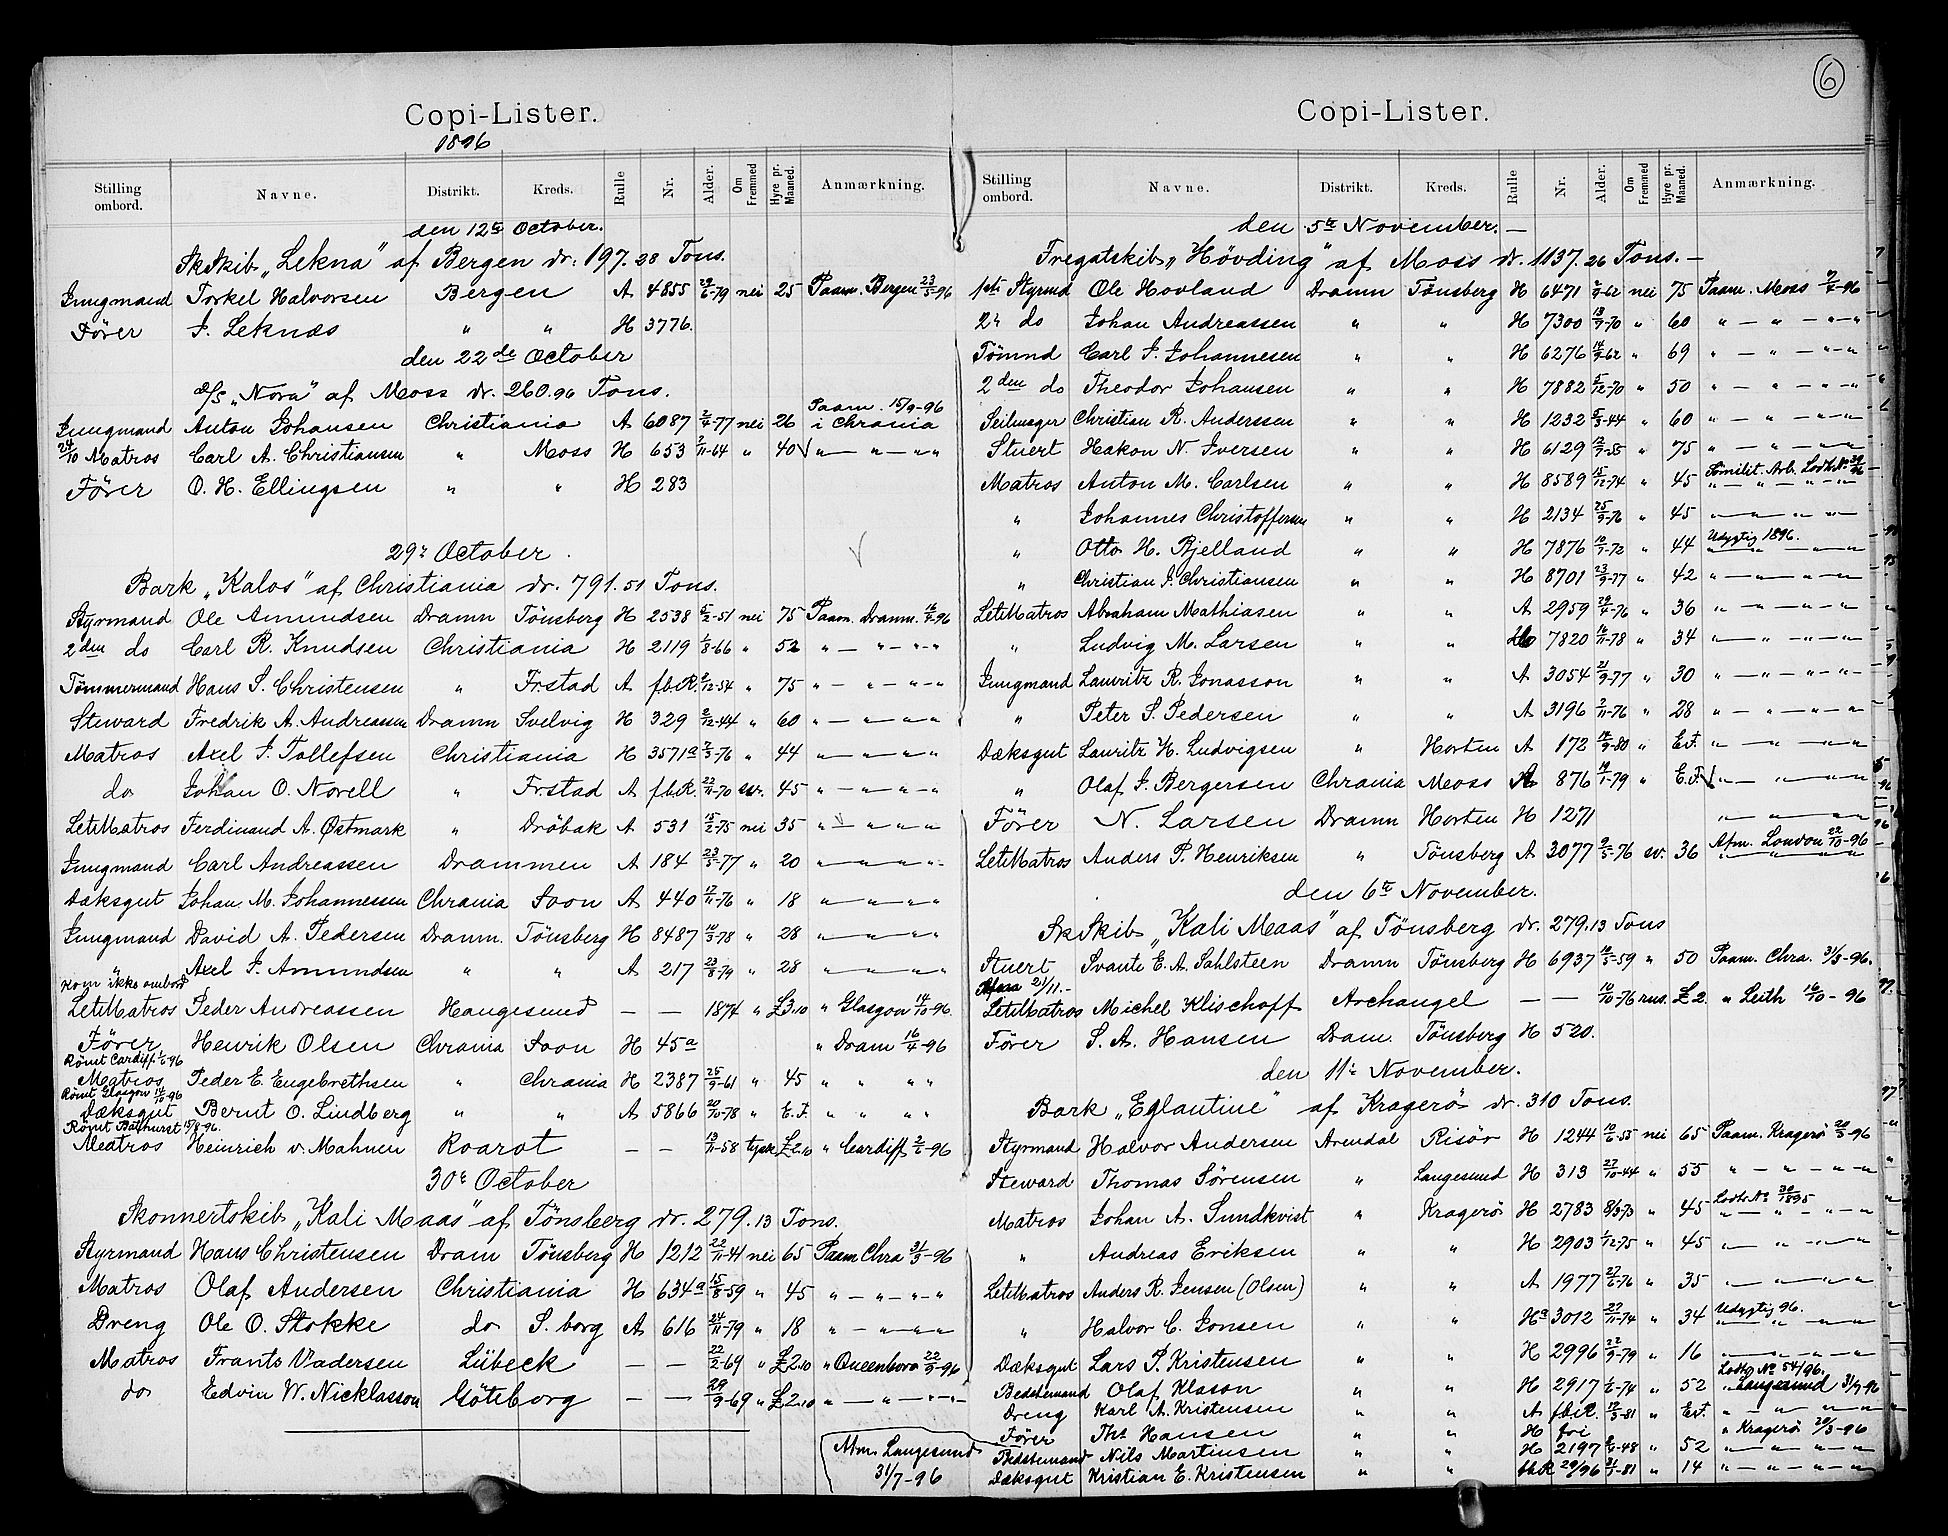 6
Copi-Lister.
1896
Stilling ombord. Navne. Distrikt. Kreds. Rulle Nr. Alder. Om Fremmed Hyre pr. Maaned. Anmærkning.
den 12te October.
SkSkib „Lekna" af Bergen dr: 197.28 Tons.
Jungmand Torkel Halvorsen Bergen A 4855 29/6-79 nei 25 Paam. Bergen 23/5-96
Fører J. Leknæs " " H 3776.
den 22de October
D/S „Nora" af Moss dr. 260.96 Tons.
Jungmand Anton Johansen Christiania A 6087 2/4-77 nei 26 Paam. 15/9-96 i Chrania
24/10 Matros Carl A. Christiansen " Moss H 653 2/11-64 " 40 " — " — " "
Fører O. H. Ellingsen " " H 283
29de October.
Bark „Kalos" af Christiania dr. 791.51 Tons.
Styrmand Ole Amundsen Dramn Tönsberg H 2538 5/2-51 nei 75 Paam. Dramn. 16/4-96
2den do Carl R. Knudsen Christiania H 2119 1/8-66 " 52 " — " — " "
Tömmermand Hans S. Christensen " Frstad A fbR. 2/12-54 " 75 " — " — " "
Steward Fredrik A. Andreassen Dramn Svelvig H 329 2/12-44 " 60 " — " — " "
Matros Axel J. Tollefsen Christiania H 3571a 2/3-76 " 44 " — " — " "
do Johan O. Norell " Frstad A fbR. 22/11-70 sv. 45 " — " — " "
LetMatros Ferdinand A. Østmark " Dröbak A 531 15/2-75 nei 35 " — " — " "
Jungmand Carl Andreassen Drammen A 184 23/5-77 " 20 " — " — " "
Dæksgut Johan M. Johannessen Chrania Soon A 440 17/11-76 " 18 " — " — " "
Jungmand David A. Pedersen Dramn. Tönsberg H 8487 10/3-78 " 28 " — " — " "
" Axel J. Amundsen " " A 217 23/8-79 " 28 " — " — " "
kom ikke ombord
LetMatros Peder Andreassen Haugesund — — 1874 " £3.10 " Glasgow 14/10-96.
Fører Henrik Olsen Chrania Soon H 45a " Dram 16/4-96
Römt Cardiff 1/6 96
Matros Peder E. Engebrethsen " Chrania H 2387 25/9-61 " 45 " " " "
Römt Glasgow 14/10-96
Dæksgut Bernt O. Lindberg " " A 5866 20/10-78 " E.F. " " " "
Römt Bathurst 15/8-96.
Matros Heinrich v. Mahnen Roarot — — 13/11-58 tysk £2.10 " Cardiff 2/6-96
30te October
Skonnertskib „Kali Maas" af Tönsberg dr. 279.13 Tons.
Styrmand Hans Christensen Dram Tönsberg H 1212 22/11-41 nei 65 Paam Chra 31/3-96
Matros Olaf Andersen Christiania H 634a 15/8-59 " 45 " — " — " "
Dreng Ole O. Stokke do S. borg A 616 24/11-79 " 18 " — " — " "
Matros Frants Vadersen Lübeck — — 22/2-69 " £2.10 " Queenboro 22/9-96
do Edvin W. Nicklasson Göteborg — — 29/9-69 " £2.10 " — " — " "
Afm. Langesund 31/7-96
Copi-Lister.
Stilling ombord. Navne. Distrikt. Kreds. Rulle Nr. Alder. Om Fremmed Hyre pr. Maaned. Anmærkning.
den 5te November. —
Fregatskib „Hövding" af Moss dr. 1137.26 Tons. —
1ste Styrmd Ole Hovland Dramn Tönsberg H 6471 2/9-62 nei 75 Paam. Moss 9/4-96
2n do Johan Andreassen " " H 7300 13/9-70 " 60 " — " — " "
Tömnd Carl J. Johannesen " " H 6276 14/9-62 " 69 " — " — " "
2den do Theodor Johansen " " H 7882 5/12-70 " 50 " — " — " "
Seilmager Christian R. Anderssen " " H 1232 5/3-44 " 60 " — " — " "
Stuert Hakon N. Iversen " " H 6129 12/7-55 " 75 " — " — " "
Matros Anton M. Carlsen " " H 8589 15/12-74 " 45 Sömilit. Arb. Lodtr. No 39/96
" Johannes Christoffersen " " H 2134 25/9-76 " 45 " — " " "
" Otto H. Bjelland " " H 7876 10/7-72 " 44 Udygtig 1896.
" Christian J. Christiansen " " H 8701 23/9-77 " 42 " — " — " "
LetMatros Abraham Mathiasen " " A 2959 29/4-76 " 36 " — " — " "
" Ludvig M. Larsen " " H 7820 16/11-78 " 34 " — " — " "
Jungmand Lauritz R. Jonasson " " A 3054 21/9-77 " 30 " — " — " "
" Peter S. Pedersen " " A 3196 2/11-76 " 28 " — " — " "
Dæksgut Lauritz H. Ludvigsen " Horten A 172 12/9-80 " E.F. " — " — " "
" Olaf J. Bergersen Chrania Moss A 876 19/1-79 " E.F " — " — " "
Fører N. Larsen Dramn Horten H 1271 " — " — " "
LetMatros Anders P. Henriksen " Tönsberg A 3077 9/5-76 sv. 36 Afm. London 22/10-96
den 6te November.
SkSkib „Kali Maas" af Tönsberg dr. 279.13 Tons
Stuert Svante E. A. Sahlsteen Dramn Tönsberg H 6937 10/5-59 " 50 Paam. Chra. 31/3-96.
21/11.-
LetMatros Michel Klischoff Archangel — — 10/10-76 rus. £2 " Leith 16/10-96
Fører S. A. Hansen Dram. Tönsberg H 520.
den 11te November.
Bark „Eglantine" af Kragerö dr. 310 Tons.
Styrmand Halvor Andersen Arendal Risör H 1244 10/6-55 nei 65 Paam. Kragerö 20/3-96
Steward Thomas Sörensen " Langesund H 313 27/10-44 " 55 " — " — " "
Matros Johan A. Sundkvist " Kragerö H 2783 8/3-73 " 45 Lodtr. No 30/1895
" Andreas Eriksen " " H 2903 1/12-75 " 45 " — " — " "
LetMatros Anders R. Jensen (Olsen) " " A 1977 27/6-76 " 35 " — " — " "
" Halvor C. Jonsen " " Ha 3012 27/11-74 " 34 Udygtig 96.
Dæksgut Lars P. Kristensen " " H 2996 22/9-79 " 16 " — " — " "
Bedstemand Olaf Klason " " H 2917 1/6-74 " 52 Lodtr No 54/96. " Langesund 31/7-96
Dreng Karl A. Kristensen " " A fbR. 12/3-81 " E.F. " — " — " "
Fører Ths Hansen " " H fri " Kragerö 20/3-96
Bedstemand Nils Martinsen " " H 2197 2/6-48 " 52 " — " — " "
Dæksgut Kristian E. Kristensen " " fbR 29/96 31/1-81 " 14 " — " — " "